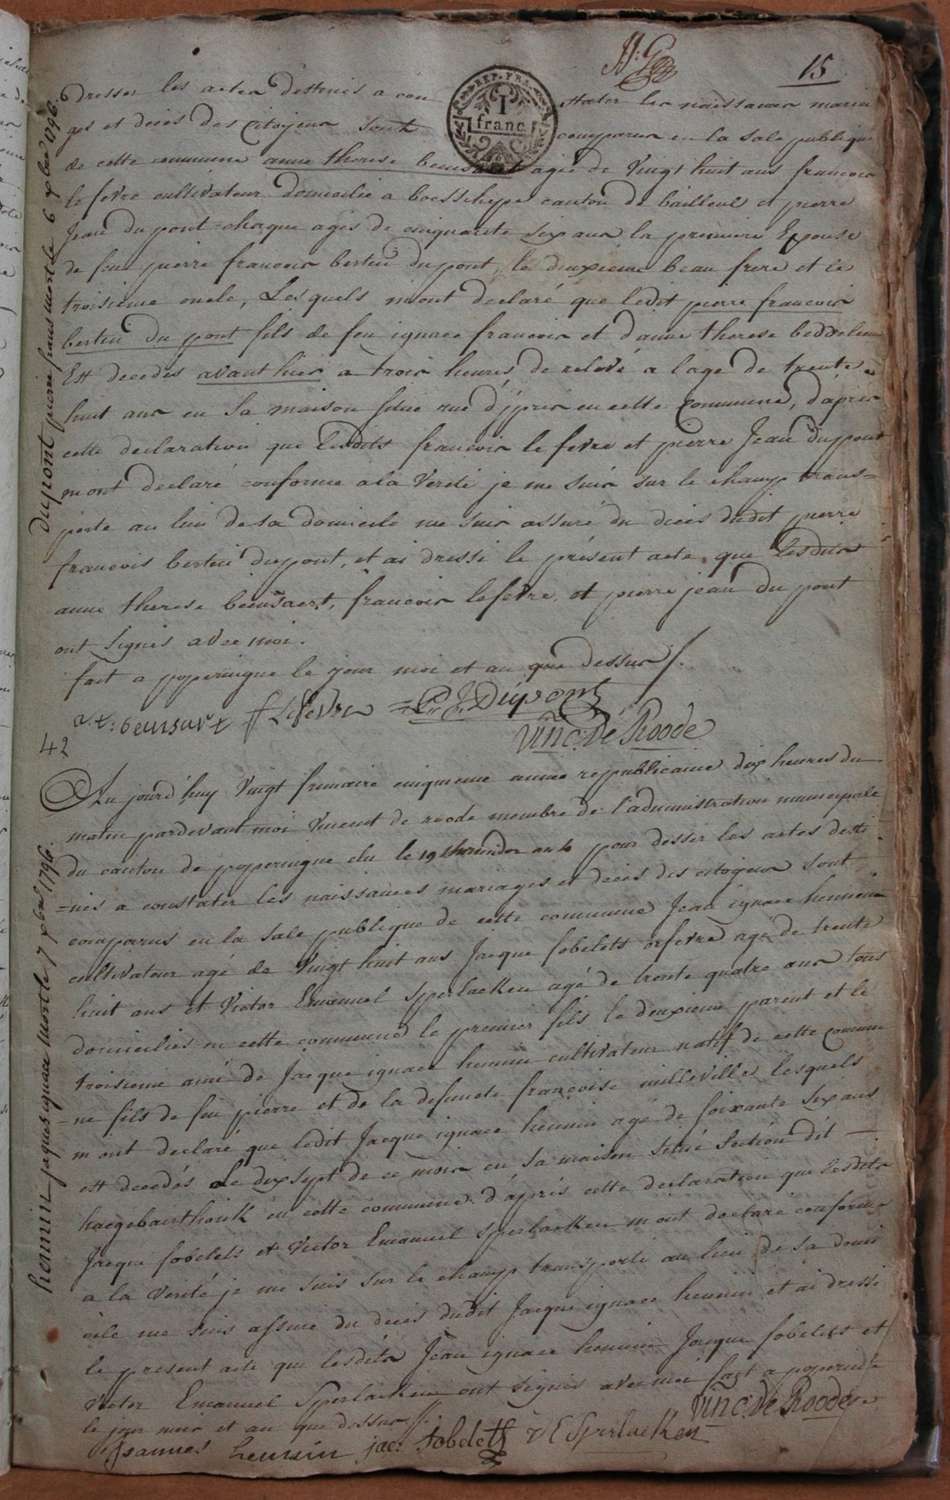 15
REP. FRA.
1
franc
dresser les actes destinés a con stater les naissances maria
ges et deces des citoyens sont comparus en la sale publique
de cette commune anne therese beunsaert agée de vingt huit ans francois
le fevre cultivateur domicilié a boesschepe canton de bailleul et pierre
Jean du pont chaque agés de cinquante six ans la premiere Epouse
de feu pierre francois bertin dupont, le deuxieme beau frere et le
troisieme oncle, Lesquels m'ont declaré que ledit pierre francois
bertin du pont fils de feu ignace francois et d'anne therese
Est decedés avant hier a trois heures de relevé a l'age de trente
huit ans en Sa maison situe rue d'ipres en cette commune, d'apres
cette declaration que lesdits francois le fevre et pierre Jean dupont
m'ont declaré conforme a la Verité je me suis sur le champ trans=
porte au lieu de sa domicile me suis assuré du deces dudit pierre
francois bertin dupont, et ai dressé le présent acte que lesdits
anne therese beunsaert, francois lefevre et pierre jean du pont
ont signés avec moi.
fait a poperingue le jour mois et an que dessus
a.t. beunsaert f Lefevre P. J. Dupont
Vinc. De Roode
Dupont pierre frans mort le 6 xbre 1796.
42
Au jourd'huy Vingt frimaire cinquieme année republicaine dix heures du
matin pardevant moi Vincent de roode membre de l'administration municipale
du canton de poperingue elu le 19 an 4 pour dresser les actes desti
=nés a constater les naissances mariages et deces des citoyens sont
comparus en la sale publique de cette commune Jean ignace hennin
cultivateur agé de Vingt huit ans Jacque fobelets orfevre agé de trente
huit ans et Victor Emanuel Sperlaeken agé de trente quatre ans tous
domiciliés en cette commune le premier fils le deuxieme parent et le
troisieme ami de Jacque ignace hennin cultivateur natif de cette commu
=ne fils de feu pierre et de la defuncte françoise milleville lesquels
m'ont declaré que ledit Jacque ignace hennin agé de soixante six ans
est decedés Le dix sept de ce mois en sa maison situé section dit
en cette commune d'après cette declaration que lesdits
Jacque fobelets et Victor Emanuel Sperlaeken m'ont declaré conforme
a la Verité je me suis sur le champ transporte au lieu de sa domi
cile me suis assuré du deces dudit Jacque ignace hennin et ai dressé
le present acte que lesdits Jean ignace hennin Jacque fobelets et
Victor Emanuel Sperlaeken ont signés avec moi fait a poperingue
le jour mois et an que dessus
Vinc. De Roode
Joannes hennin jac. fobelets V E Sperlaeken
hennin jaques ignace mort le 7 xbre 1796.